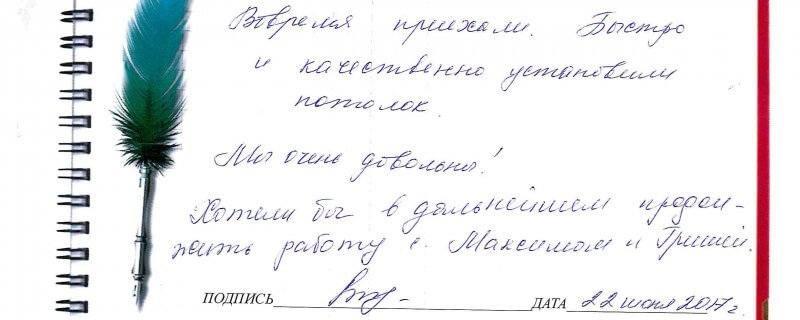 Вовремя приехали. Быстро
и качественно установили
потолок.
Мы очень довольны!
Хотели бы в дальнейшем продол-
жить работу с Максимом и Гришей.
ПОДПИСЬ ДАТА 22 июня 2017г.